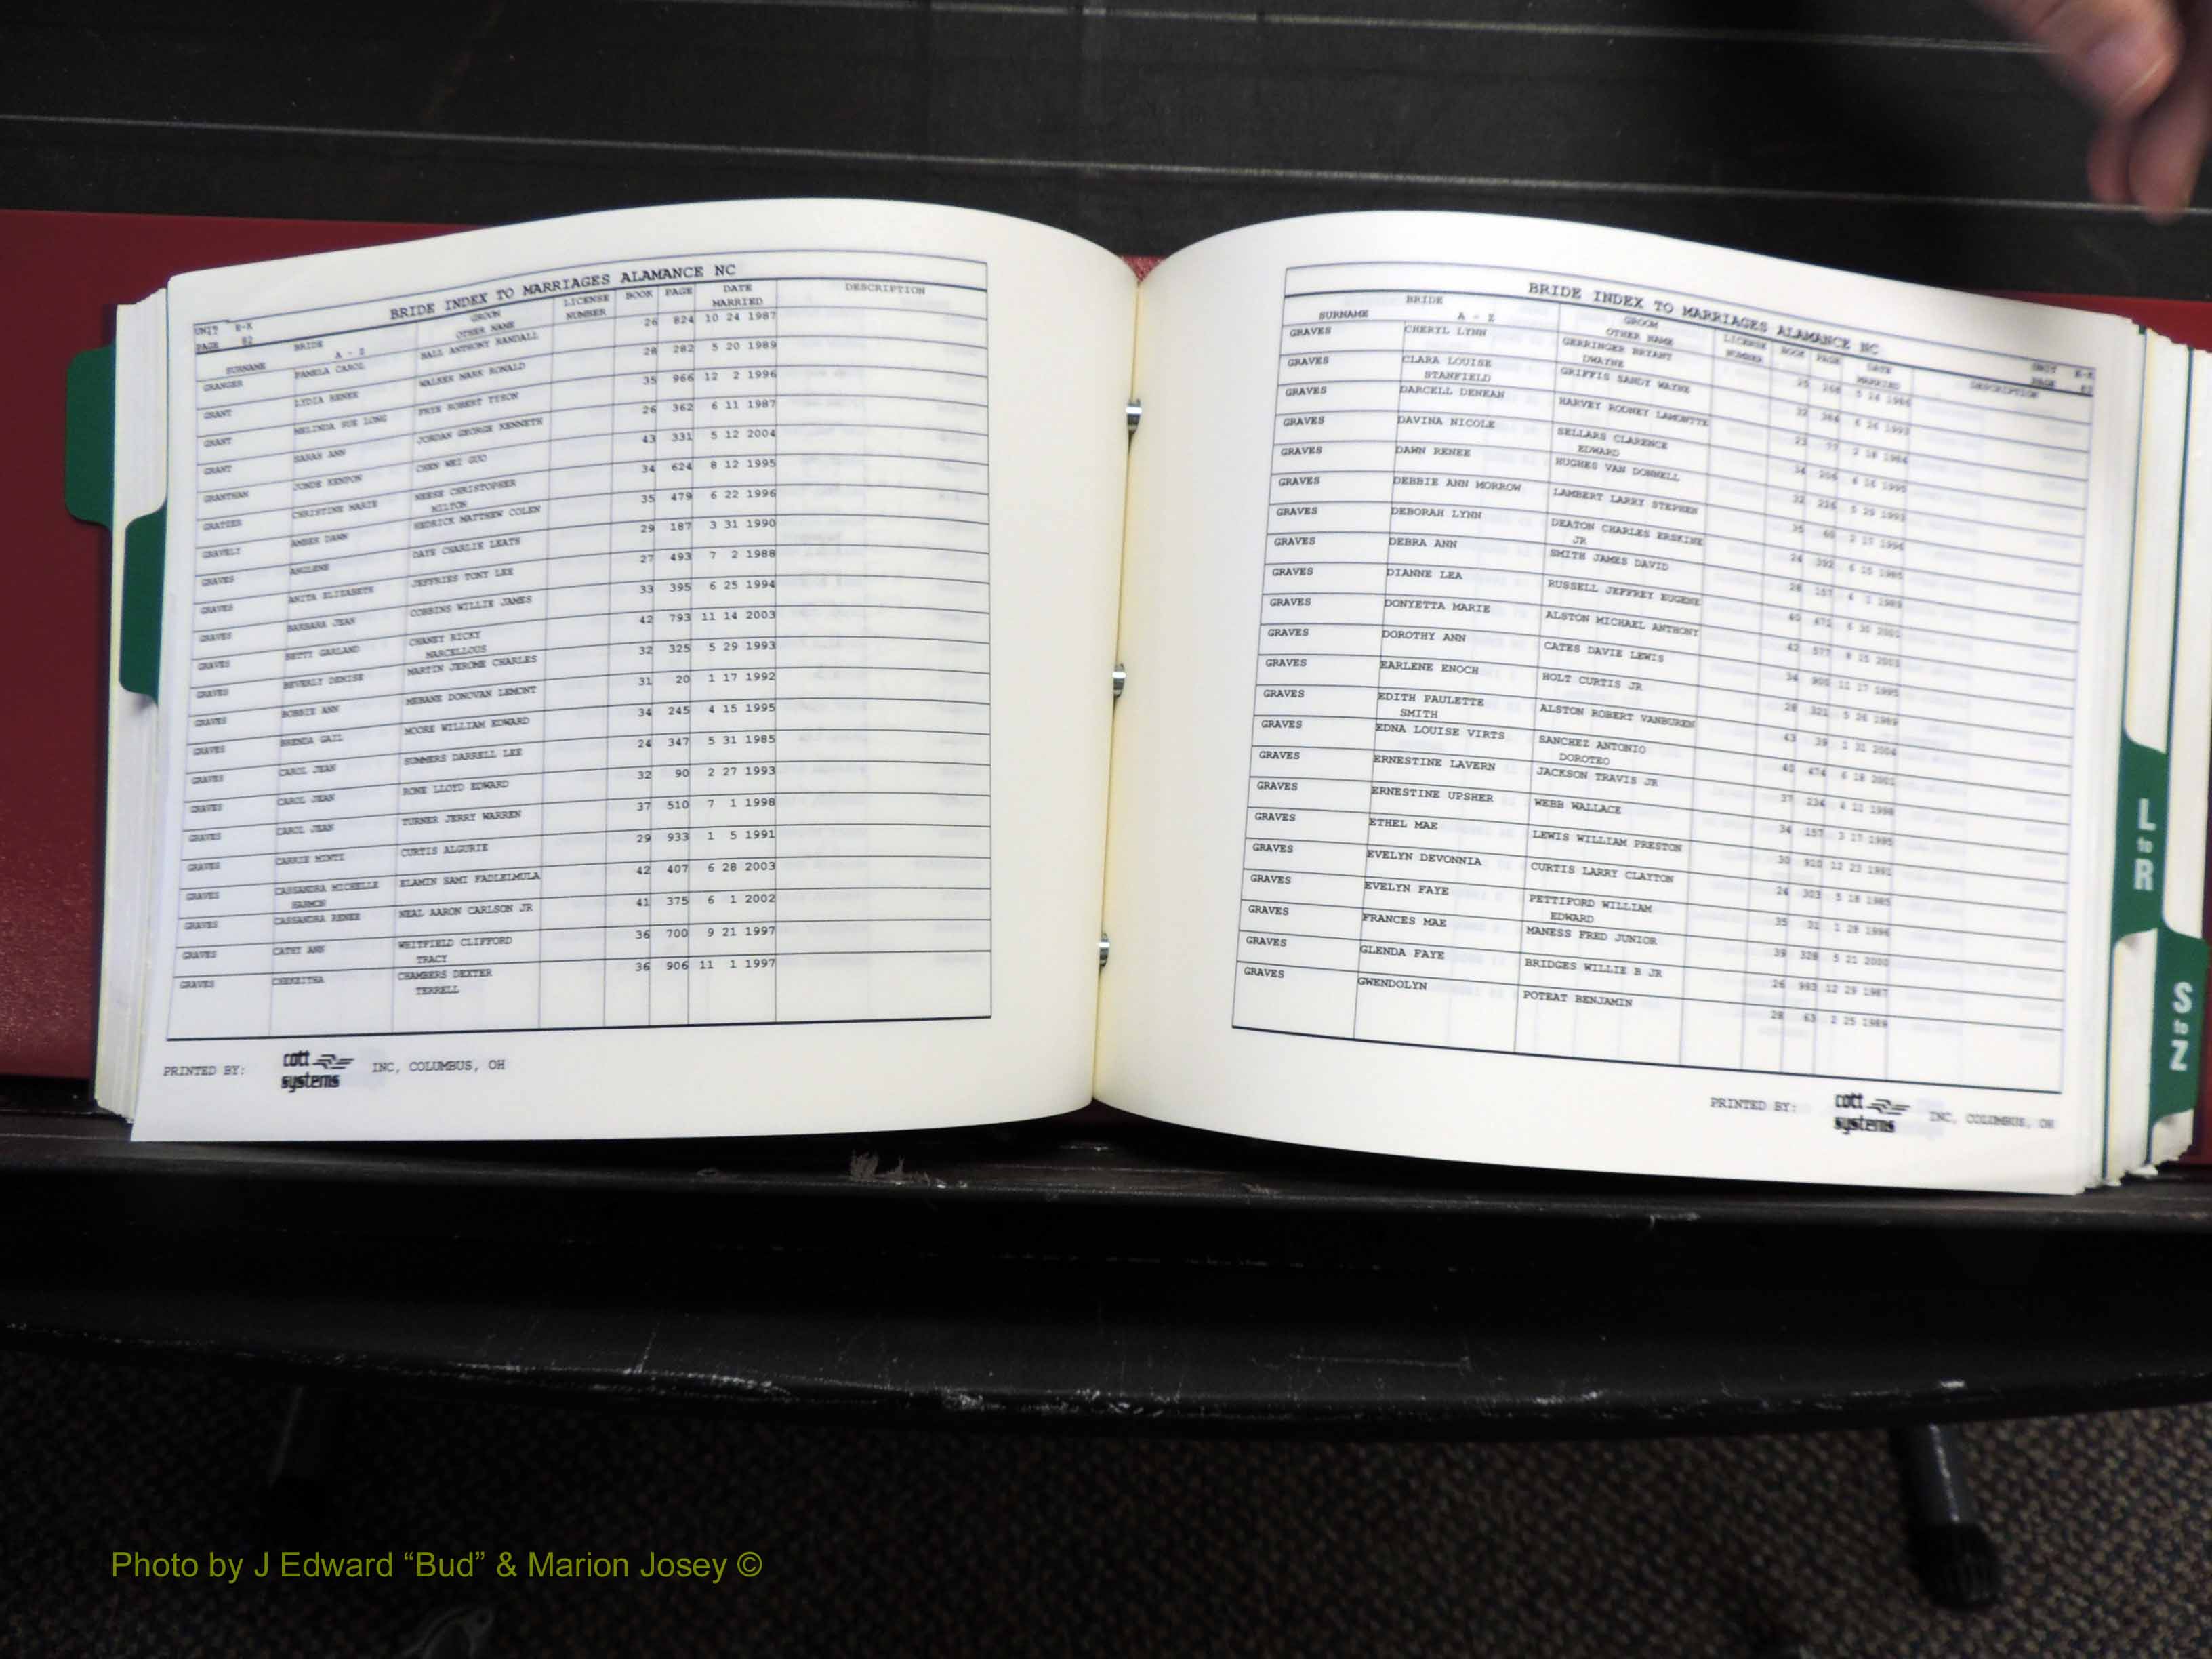 BRIDE INDEX TO MARRIAGES ALAMANCE NC
UNIT E-K
PAGE 82
SURNAME BRIDE A - Z GROOM OTHER NAME LICENSE NUMBER BOOK PAGE DATE MARRIED DESCRIPTION
GRANGER PAMELA CAROL HALL ANTHONY RANDALL 26 824 10 24 1987
GRANT LYDIA RENEE WALKER MARK RONALD 28 282 5 20 1989
GRANT MELINDA SUE LONG FRYE ROBERT TYSON 35 966 12 2 1996
GRANT SARAH ANN JORDAN GEORGE KENNETH 26 362 6 11 1987
GRANTHAM JONDE KENYON CHEN WEI GUO 43 331 5 12 2004
GRATZER CHRISTINE MARIE NEESE CHRISTOPHER 34 624 8 12 1995
MILTON
GRAVELY AMBER DAWN HEDRICK MATTHEW COLEN 35 479 6 22 1996
GRAVES ANGLENE DAYE CHARLIE LEATH 29 187 3 31 1990
GRAVES ANITA ELIZABETH JEFFRIES TONY LEE 27 493 7 2 1988
GRAVES BARBARA JEAN COBBINS WILLIE JAMES 33 395 6 25 1994
GRAVES BETTY GARLAND CHANEY RICKY 42 793 11 14 2003
MARCELLOUS
GRAVES BEVERLY DENISE MARTIN JEROME CHARLES 32 325 5 29 1993
GRAVES BOBBIE ANN MEBANE DONOVAN LEMONT 31 20 1 17 1992
GRAVES BRENDA GAIL MOORE WILLIAM EDWARD 34 245 4 15 1995
GRAVES CAROL JEAN SUMMERS DARRELL LEE 24 347 5 31 1985
GRAVES CAROL JEAN RONE LLOYD EDWARD 32 90 2 27 1993
GRAVES CAROL JEAN TURNER JERRY WARREN 37 510 7 1 1998
GRAVES CARRIE MINTZ CURTIS ALGURIE 29 933 1 5 1991
GRAVES CASSANDRA MICHELLE ELAMIN SAMI FADLELMULA 42 407 6 28 2003
HARMON
GRAVES CASSANDRA RENEE NEAL AARON CARLSON JR 41 375 6 1 2002
GRAVES CATHY ANN WHITFIELD CLIFFORD 36 700 9 21 1997
TRACY
GRAVES CHEKEITHA CHAMBERS DEXTER 36 906 11 1 1997
TERRELL
PRINTED BY: cott systems INC, COLUMBUS, OH
BRIDE INDEX TO MARRIAGES ALAMANCE NC
UNIT E-K
PAGE 83
SURNAME BRIDE A - Z GROOM OTHER NAME LICENSE NUMBER BOOK PAGE DATE MARRIED DESCRIPTION
GRAVES CHERYL LYNN GERRINGER BRYANT 25 268 5 24 1986
DWAYNE
GRAVES CLARA LOUISE GRIFFIS SANDY WAYNE 32 384 6 26 1993
STANFIELD
GRAVES DARCELL DENEAN HARVEY RODNEY LAMONTTE 23 77 2 18 1984
GRAVES DAVINA NICOLE SELLARS CLARENCE 34 206 4 16 1995
EDWARD
GRAVES DAWN RENEE HUGHES VAN DONNELL 32 226 5 29 1993
GRAVES DEBBIE ANN MORROW LAMBERT LARRY STEPHEN 35 60 2 17 1996
GRAVES DEBORAH LYNN DEATON CHARLES ERSKINE 24 392 6 15 1985
JR
GRAVES DEBRA ANN SMITH JAMES DAVID 28 157 4 1 1989
GRAVES DIANNE LEA RUSSELL JEFFREY EUGENE 40 471 6 30 2001
GRAVES DONYETTA MARIE ALSTON MICHAEL ANTHONY 42 577 8 15 2003
GRAVES DOROTHY ANN CATES DAVIE LEWIS 34 900 11 17 1995
GRAVES EARLENE ENOCH HOLT CURTIS JR 28 321 5 26 1989
GRAVES EDITH PAULETTE ALSTON ROBERT VANBUREN 43 39 1 31 2004
SMITH
GRAVES EDNA LOUISE VIRTS SANCHEZ ANTONIO 40 474 6 18 2001
DOROTEO
GRAVES ERNESTINE LAVERN JACKSON TRAVIS JR 37 234 4 11 1998
GRAVES ERNESTINE UPSHER WEBB WALLACE 34 157 3 17 1995
GRAVES ETHEL MAE LEWIS WILLIAM PRESTON 30 910 12 23 1991
GRAVES EVELYN DEVONNIA CURTIS LARRY CLAYTON 24 303 5 18 1985
GRAVES EVELYN FAYE PETTIFORD WILLIAM 35 31 1 28 1996
EDWARD
GRAVES FRANCES MAE MANESS FRED JUNIOR 39 328 5 21 2000
GRAVES GLENDA FAYE BRIDGES WILLIE B JR 26 993 12 29 1987
GRAVES GWENDOLYN POTEAT BENJAMIN 28 63 2 25 1989
PRINTED BY: cott systems INC, COLUMBUS, OH
L to R
S to Z
Photo by J Edward “Bud” & Marion Josey ©